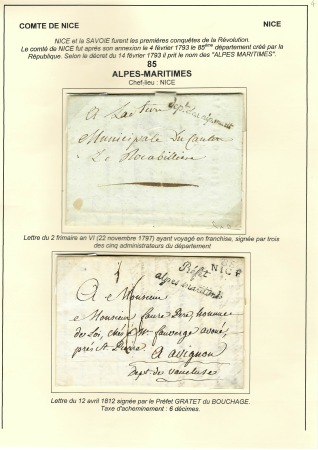 COMTE DE NICE
NICE
NICE et la SAVOIE furent les premières conquêtes de la Révolution.
Le comté de NICE fut après son annexion le 4 février 1793 le 85ème département créé par la
République. Selon le décret du 14 février 1793 il prit le nom des "ALPES MARITIMES".
85
ALPES-MARITIMES
Chef-lieu : NICE
A
Municipale Du Canton
De Rocabilliere
Lettre du 2 frimaire an VI (22 novembre 1797) ayant voyagé en franchise, signée par trois
des cinq administrateurs du département
Préfet
NICE
alpes maritimes
A Monsieur
Monsieur faure Pere, homme
de Loi, chés Mr
prés St. Pierre
A avignon
Dept de vaucluse
Lettre du 12 avril 1812 signée par le Préfet GRATET du BOUCHAGE.
Taxe d'acheminement : 6 décimes.